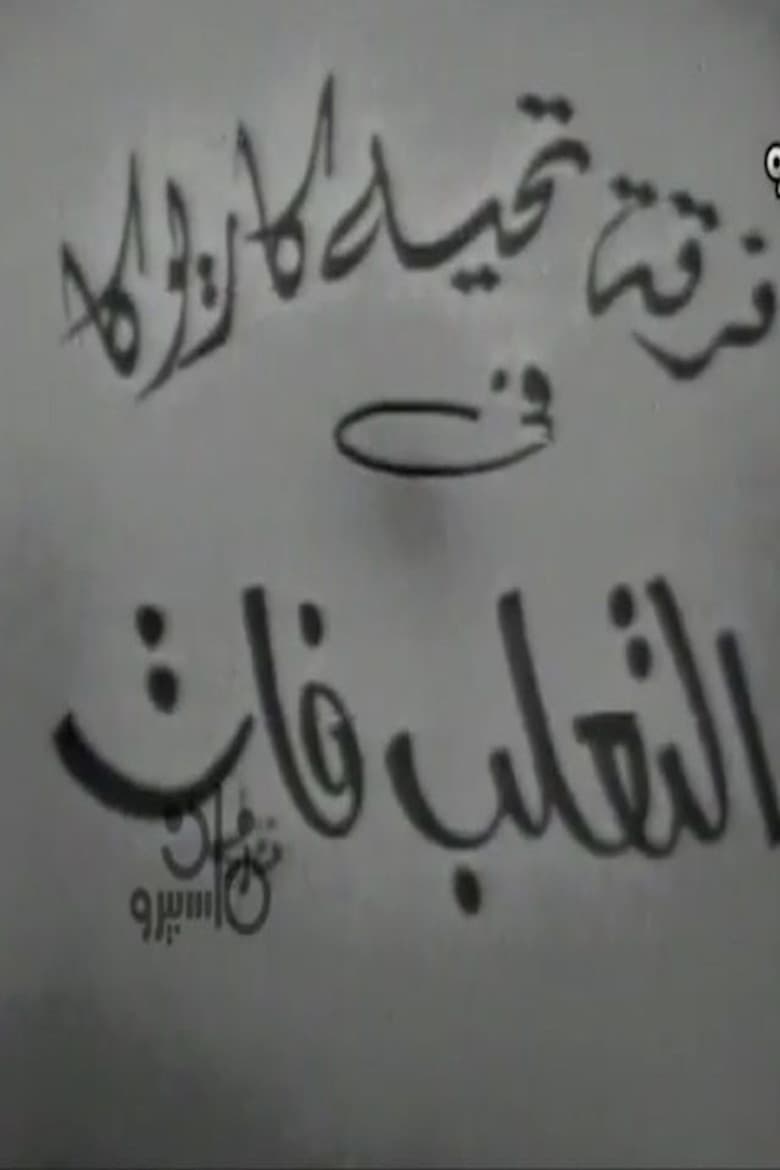 فرقة تحيه كاريوكا
فى
التعلب فات
ماسبيرو